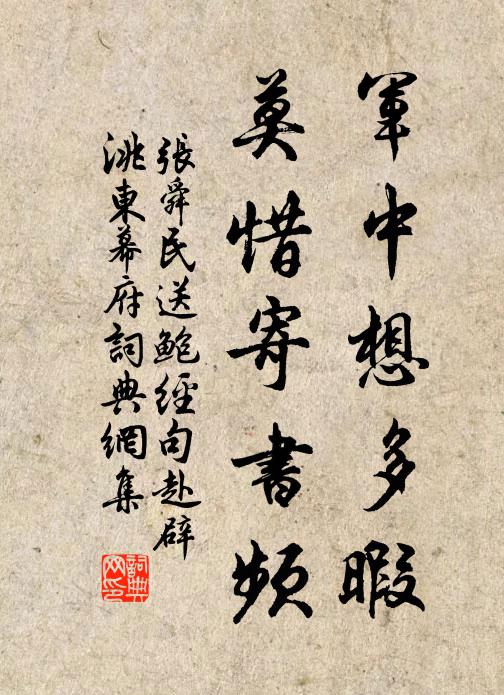 軍中想多暇
莫惜寄書頻
張舜民送鮑經句赴辟
洮東幕府詞典網集
詞典
网印